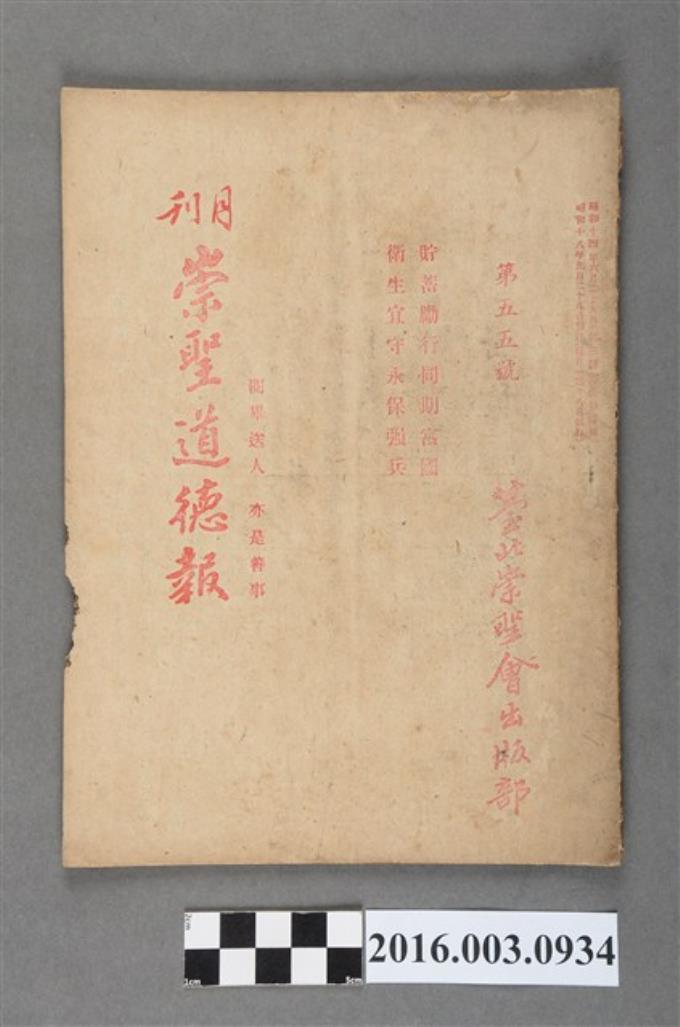 第五五號
臺北崇聖會出版部
貯蓄勵行同期富國
衛生宜守永保强兵
閱畢送人 亦是善事
月刊
崇聖道德報
2cm
1cm
5cm
2016.003.0934